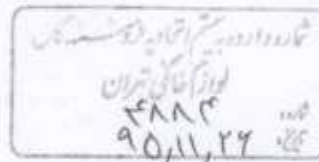 شماره وارده سیستم اتحادیه فروشندگان
لوازم خانگی تهران
شماره ۴۸۸۴
تاریخ ۹۵,۱۱,۲۶